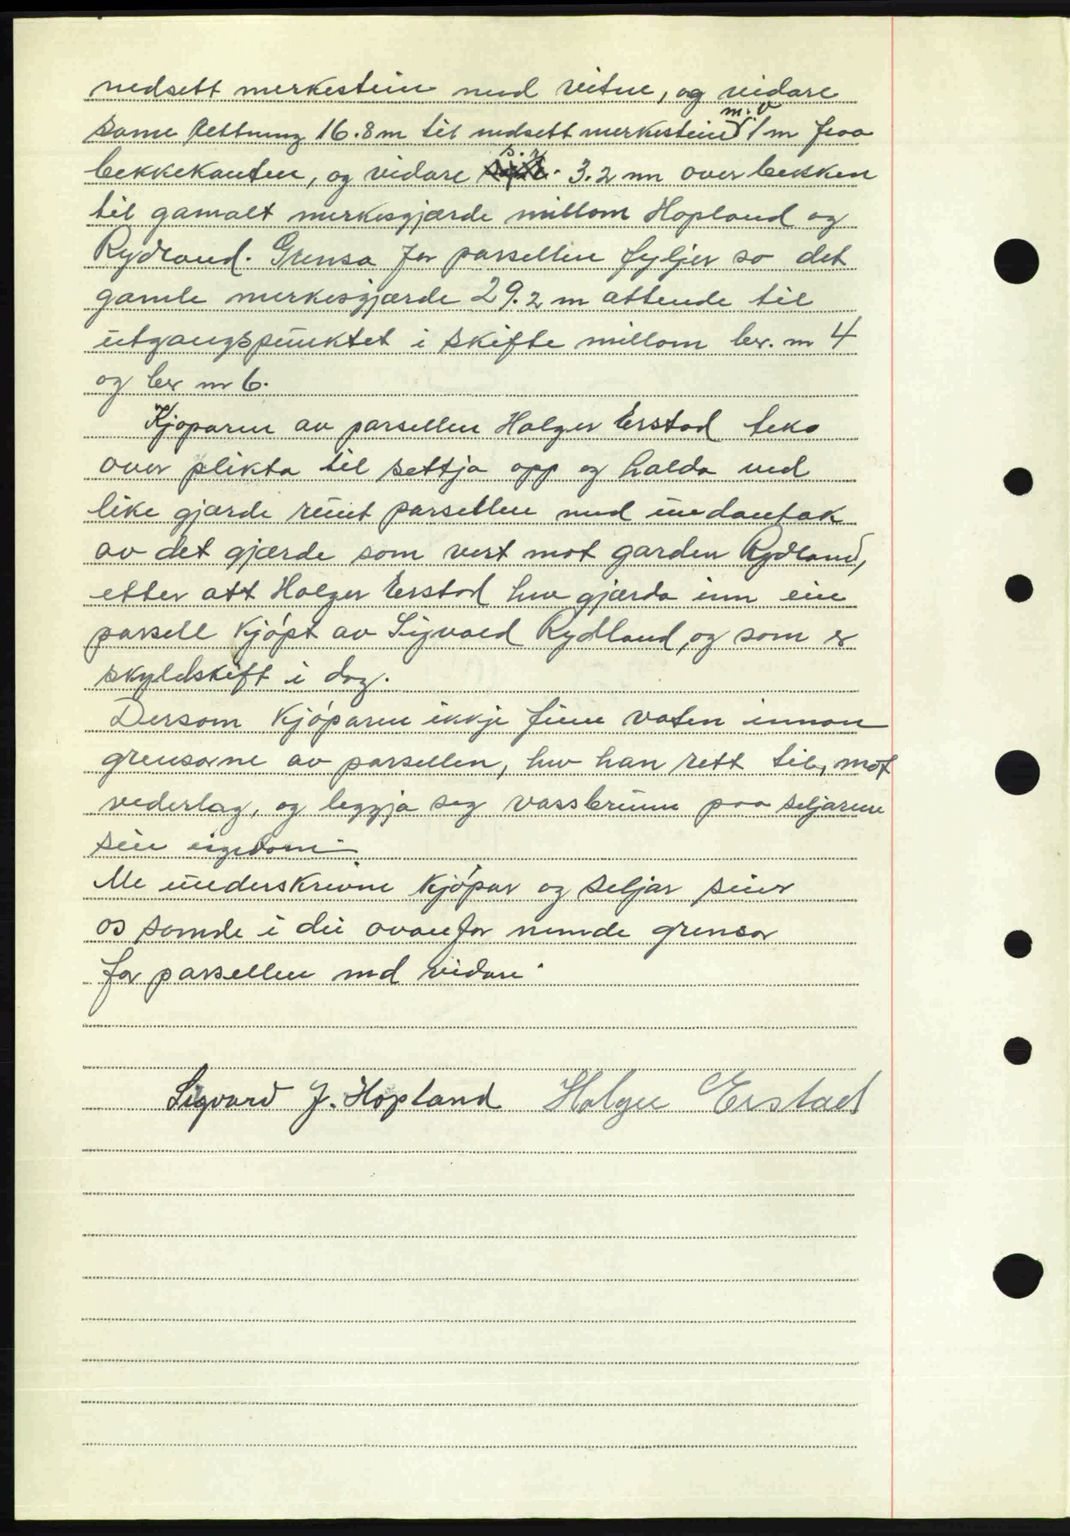 nedsett merkestein med vitne, og vidare
m. v
same Rettning 16.8 m til nedsett merkestein 1 m fraa
s. r
bekkekanten, og vidare 3.2 m over bekken
til gamalt merkesgjærde millom Hopland og
Rydland. Grensa for parsellen fylgjer so det
gamle merkesgjærde 29.2 m attende til
utgangspunktet i skifte millom br. nr 4
og br nr 6.
Kjøparen av parsellen Holger Erstad teke
over plikta til settja opp og halda ved
like gjærde runt parsellen med undantak
av det gjærde som vert mot garden Rydland,
etter att Holger Erstad hev gjærda inn ein
parsell kjøpt av Sigvald Rydland, og som er
skyldskift i dag.
Dersom kjøparen ikkje finn vaten innan
grensorne av parsellen, hev han rett til, mot
vederlag, og leggja seg vassbrunn paa seljaren
sin eigedom
Me underskrivne kjøpar og seljar seier
os samde i dei ovanfor nemnde grensor
for parsellen med vidare

Sigvard J. Hopland Holger Erstad